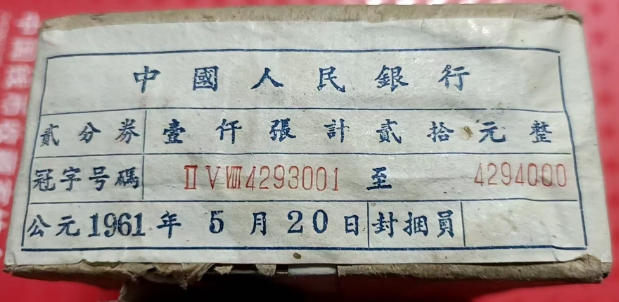 中國人民銀行
貳分券 壹仟張計貳拾元整
冠字号碼 ⅡⅤⅧ4293001 至 4294000
公元1961年5月20日 封捆員